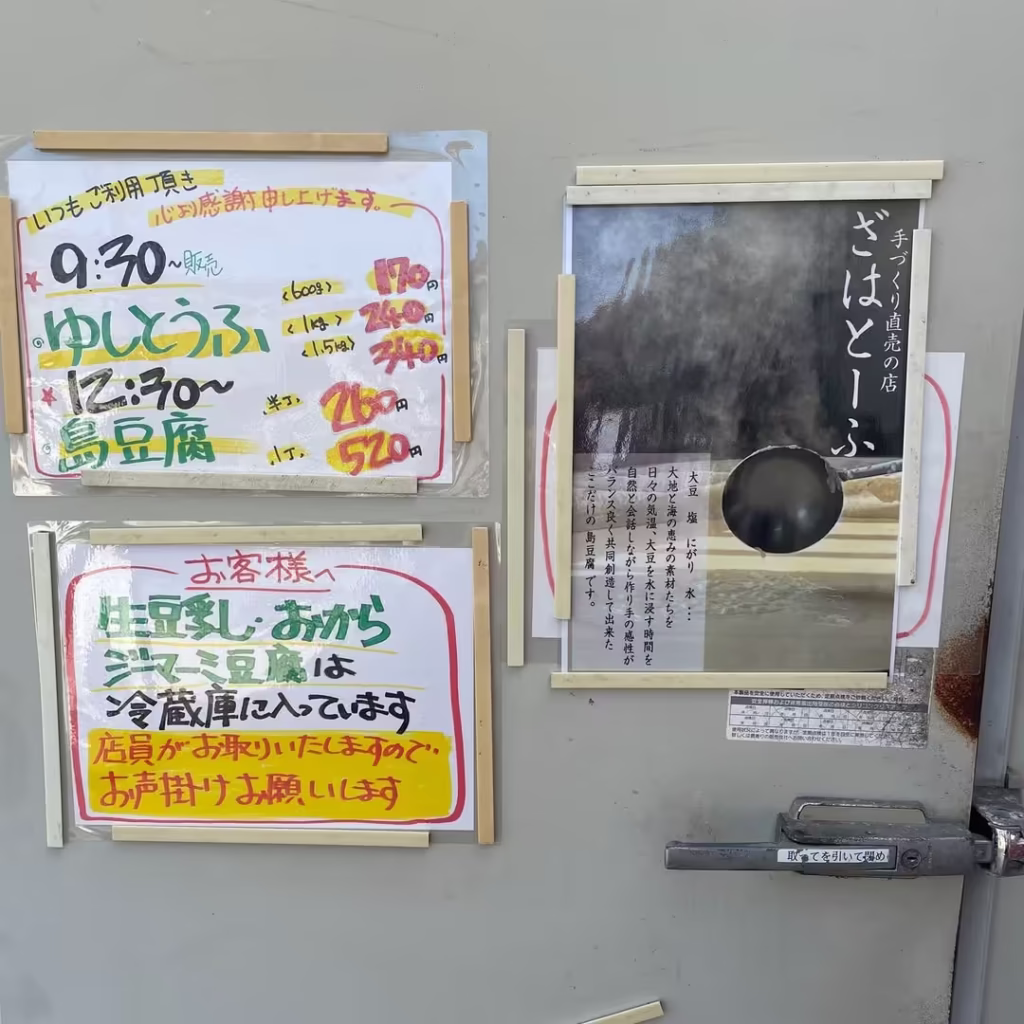 いつもご利用頂き
心より感謝申し上げます。
9:30~販売
ゆしとうふ
<600g> 170円
<1kg> 240円
<1.5kg> 340円
12:30~
島豆腐
半丁 260円
1丁 520円
お客様へ
生豆乳・おから
ジーマーミ豆腐は
冷蔵庫に入っています
店員がお取りいたしますので、
お声掛けお願いします
手づくり直売の店
ざはとーふ
大豆 塩 にがり 水…
大地と海の恵みの素材たちを
日々の気温、大豆を水に浸す時間を
自然と会話しながら作り手の感性が
バランス良く共同創造して出来た
ここだけの島豆腐です。
取 てを引いて閉め